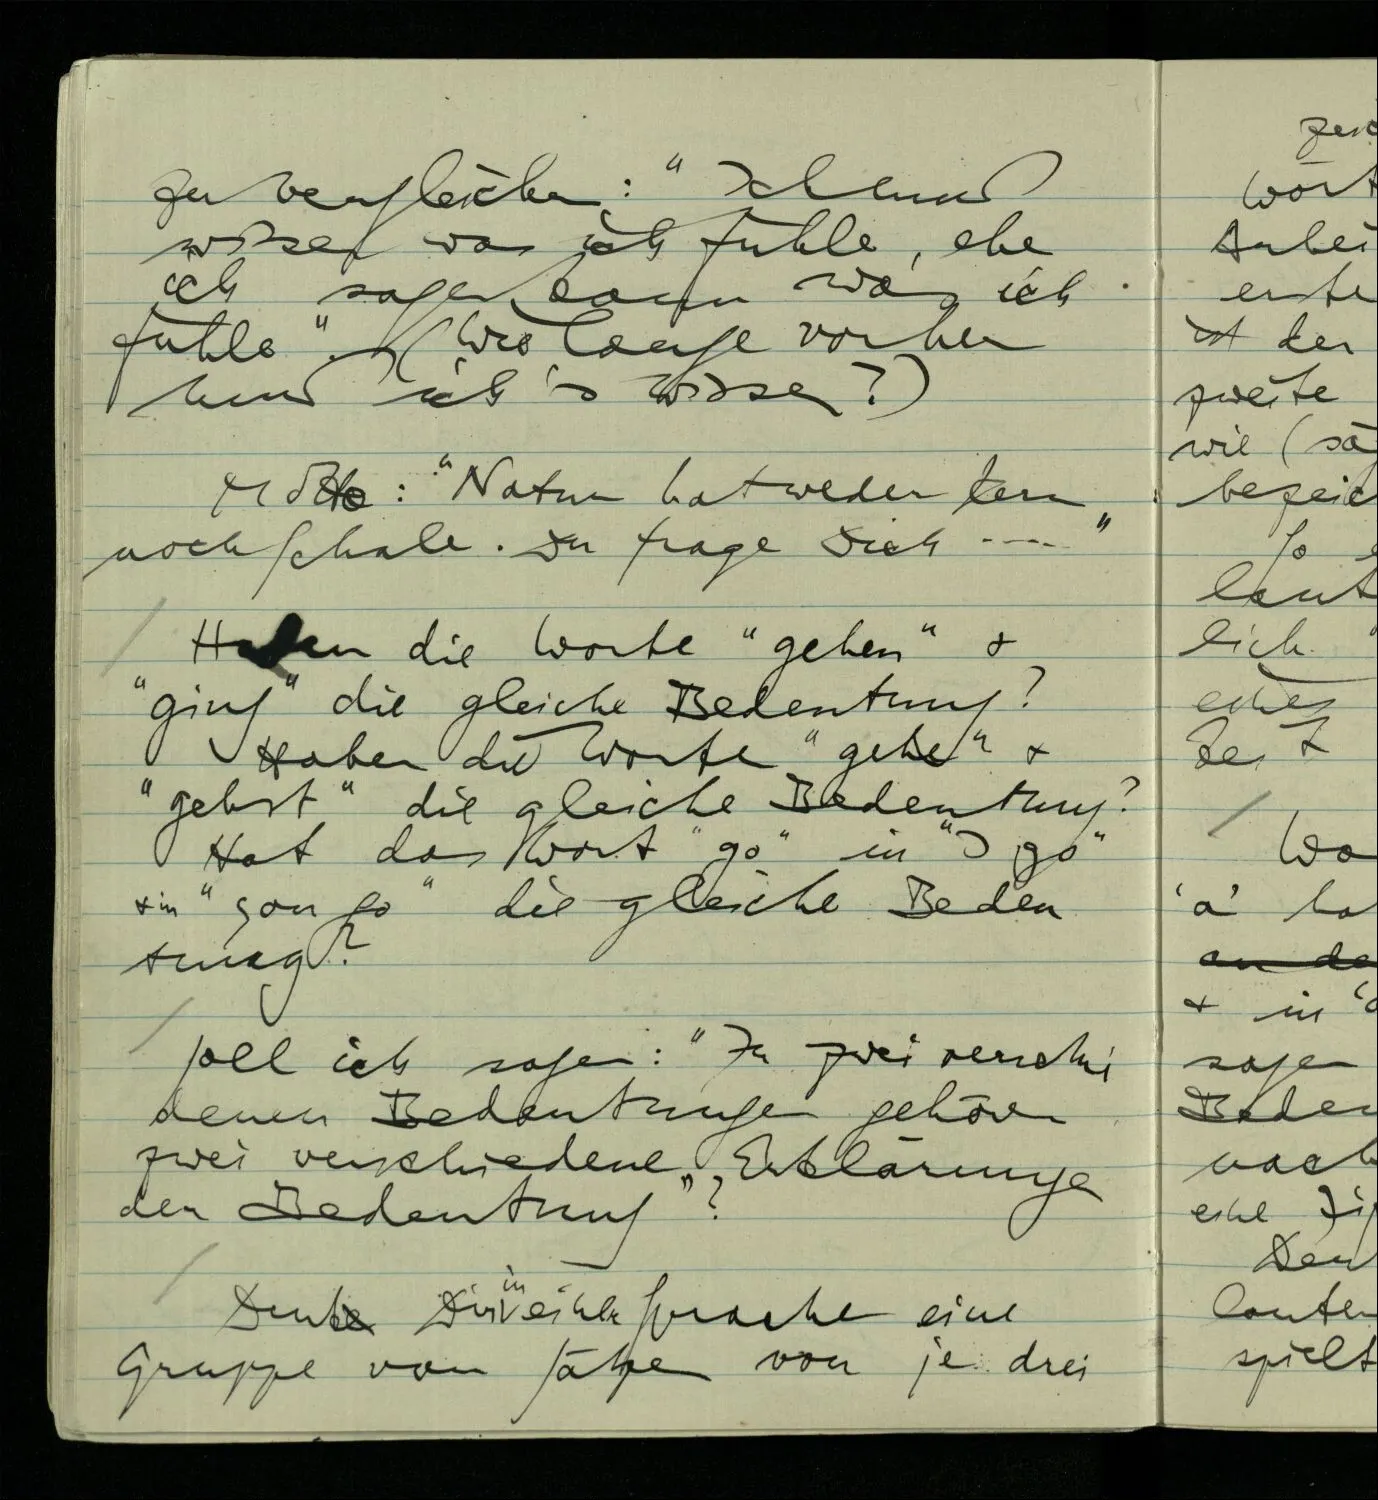 zu vergleichen: "Ich muß
wissen was ich fühle, ehe
ich sagen kann was ich
fühle". (Wie lange vorher
muß ich's wissen?)
Motto: "Natur hat weder Kern
noch Schale. Du frage Dich ----"
Haben die Worte "gehen" &
"ging" die gleiche Bedeutung?
Haben die Worte "gehe" &
"gehst" die gleiche Bedeutung?
Hat das Wort "go" in "I go"
& in "you go" die gleiche Bedeu
tung?
Soll ich sagen: "Zu zwei verschie
denen Bedeutungen gehören
zwei verschiedene Erklärungen
der Bedeutung"?
Denke Dir in einer Sprache eine
Gruppe von Sätzen von je drei
Wört
Arbei
erste
ist der
zweite
wie (
bezeich
So
laut
lich.
Wo
'a' ha
& in
sagen
Bedeu
nach
eine
lauten
spielt